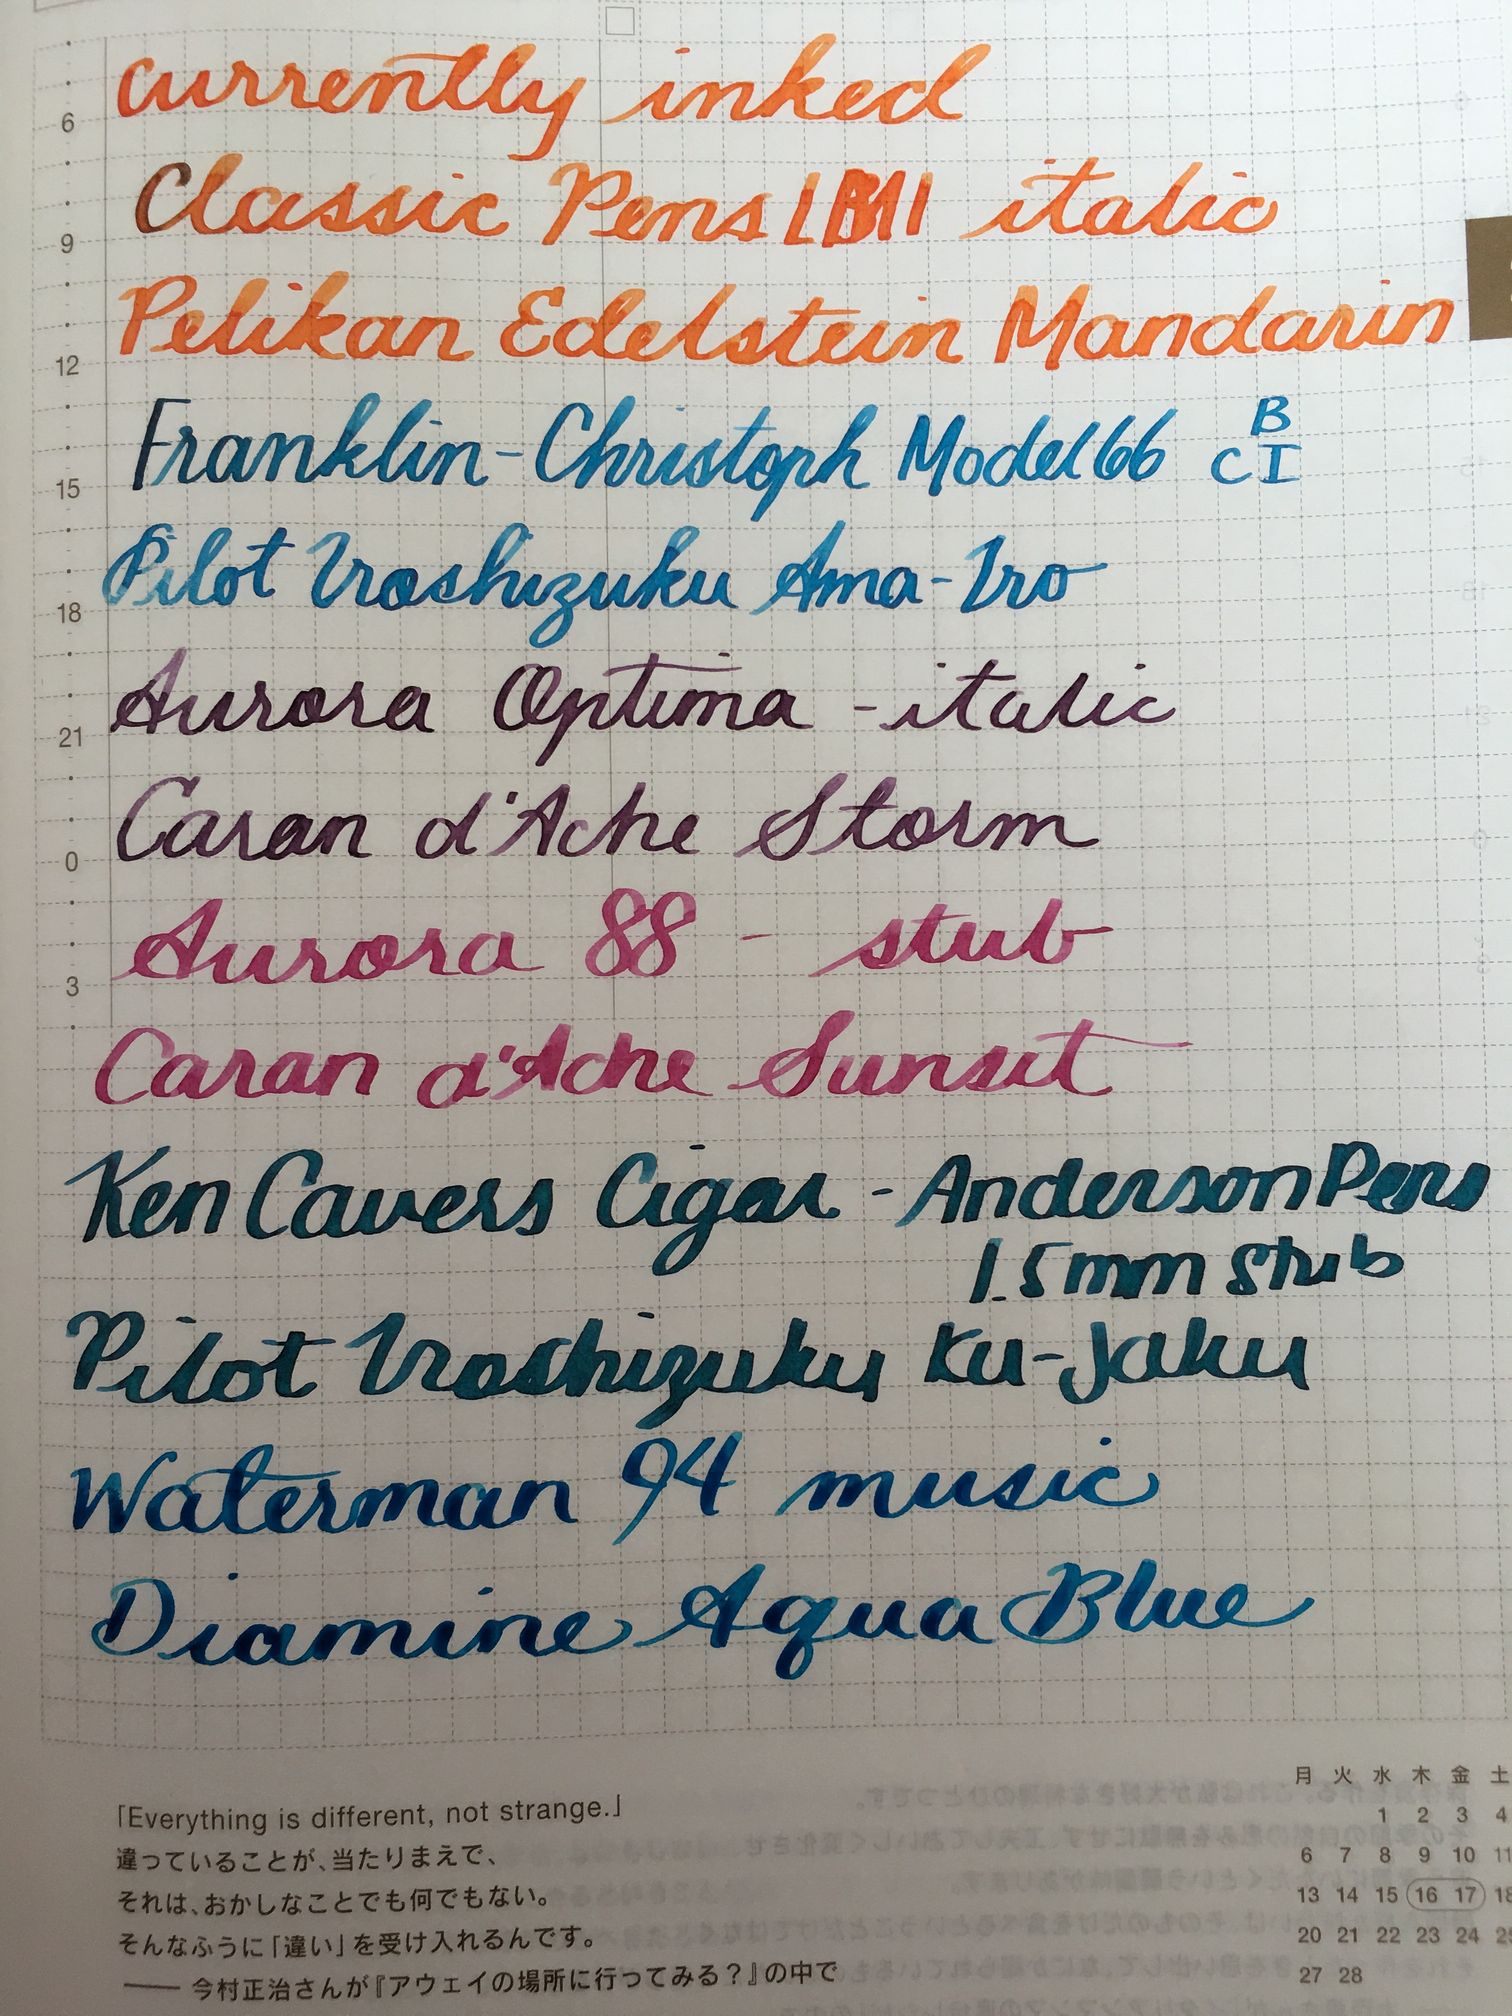 currently inked
6
Classic Pens LB111 italic
9
Pelikan Edelstein Mandarin
12
Franklin-Christoph Model 66 B
CI
15
Pilot Iroshizuku Ama-Iro
18
Aurora Optima - italic
21
Caran d'Ache Storm
0
Aurora 88 - stub
3
Caran d'Ache Sunset
Ken Cavers Cigar - Anderson Pens
1.5mm Stub
Pilot Iroshizuku Ku-Jaku
Waterman 94 music
Diamine Aqua Blue
「Everything is different, not strange.」
違っていることが、当たりまえで、
それは、おかしなことでも何でもない。
そんなふうに「違い」を受け入れるんです。
—— 今村正治さんが『アウェイの場所に行ってみる?』の中で
月 火 水 木 金 土
1 2 3 4
6 7 8 9 10 11
13 14 15 16 17 18
20 21 22 23 24 25
27 28